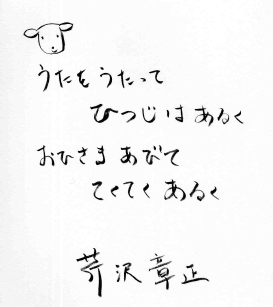 うたをうたって
ひつじはあるく
おひさまあびて
てくてくあるく
芹沢章正